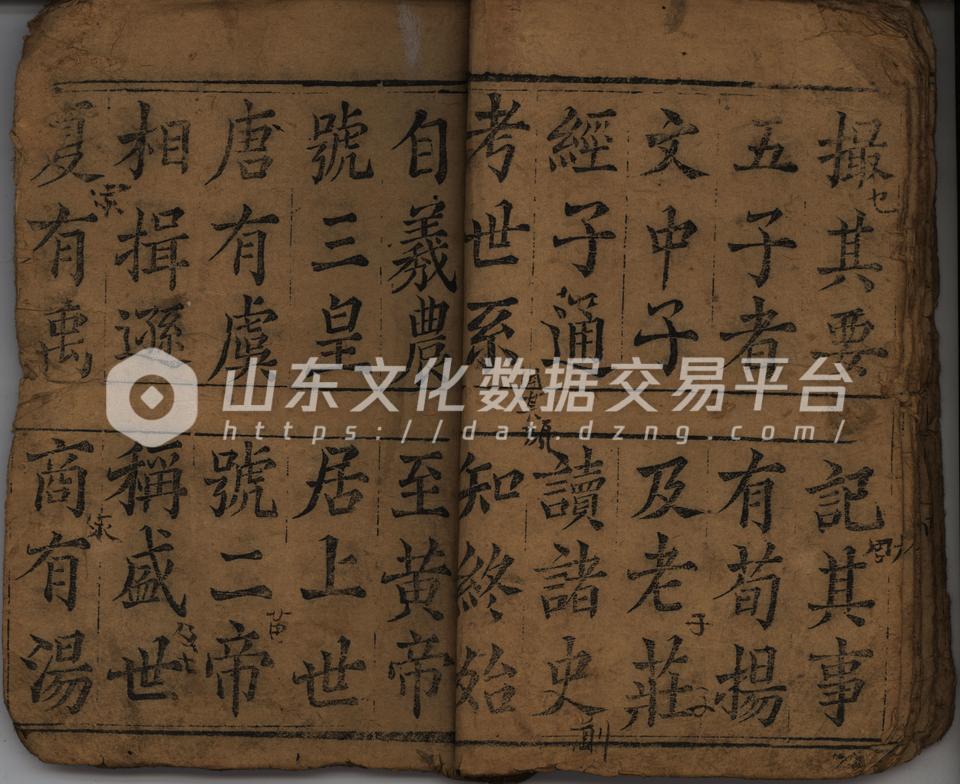 撮其要 記其事
五子者 有荀揚
文中子 及老莊
經子通 讀諸史
考世系 知終始
自羲農 至黄帝
號三皇 居上世
唐有虞 號二帝
相揖遜 稱盛世
夏有禹 商有湯
山东文化数据交易平台
https://data.dzng.com/